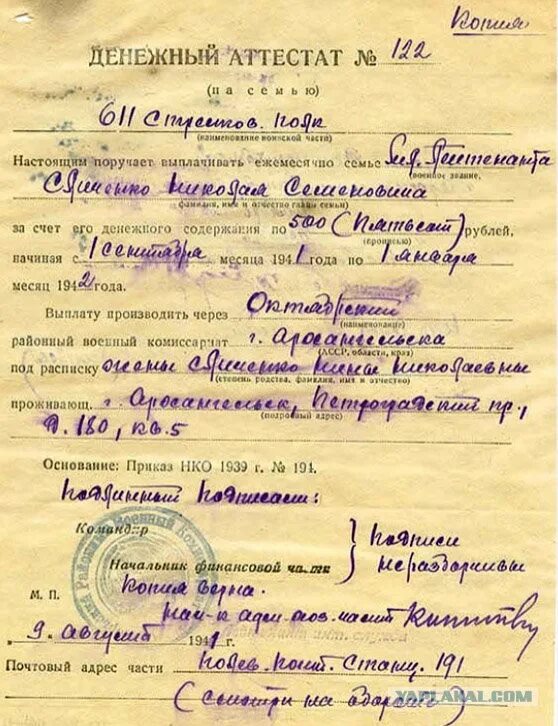 Копия
ДЕНЕЖНЫЙ АТТЕСТАТ № 122
(на семью)
611 Стрелков. полк
(наименование воинской части)
Настоящим поручает выплачивать ежемесячно семье Мл. Лейтенанта
(военное звание,
Николая Семеновича
фамилия, имя и отчество главы семьи)
за счет его денежного содержания по 500 (Пятьсот) рублей,
(прописью)
начиная с 1 сентября месяца 1941 года по 1 января
месяц 1942 года.
Выплату производить через Октябрский
(наименование)
районный военный комиссариат г. Архангельска
(АССР, области, края)
под расписку жены Нины Николаевны
(степень родства, фамилия, имя и отчество)
проживающ. г. Архангельск, Петроградский пр.,
(подробный адрес)
д. 180, кв. 5
Основание: Приказ НКО 1939 г. № 194.
Подлинный подписали:
Командир
Начальник финансовой части
Подписи
неразборчивы
М. П.
Копия верна.
9 август 1941 г.
Почтовый адрес части Полев. Почт. Станц. 191
(смотри на
YAPLAKAL.COM